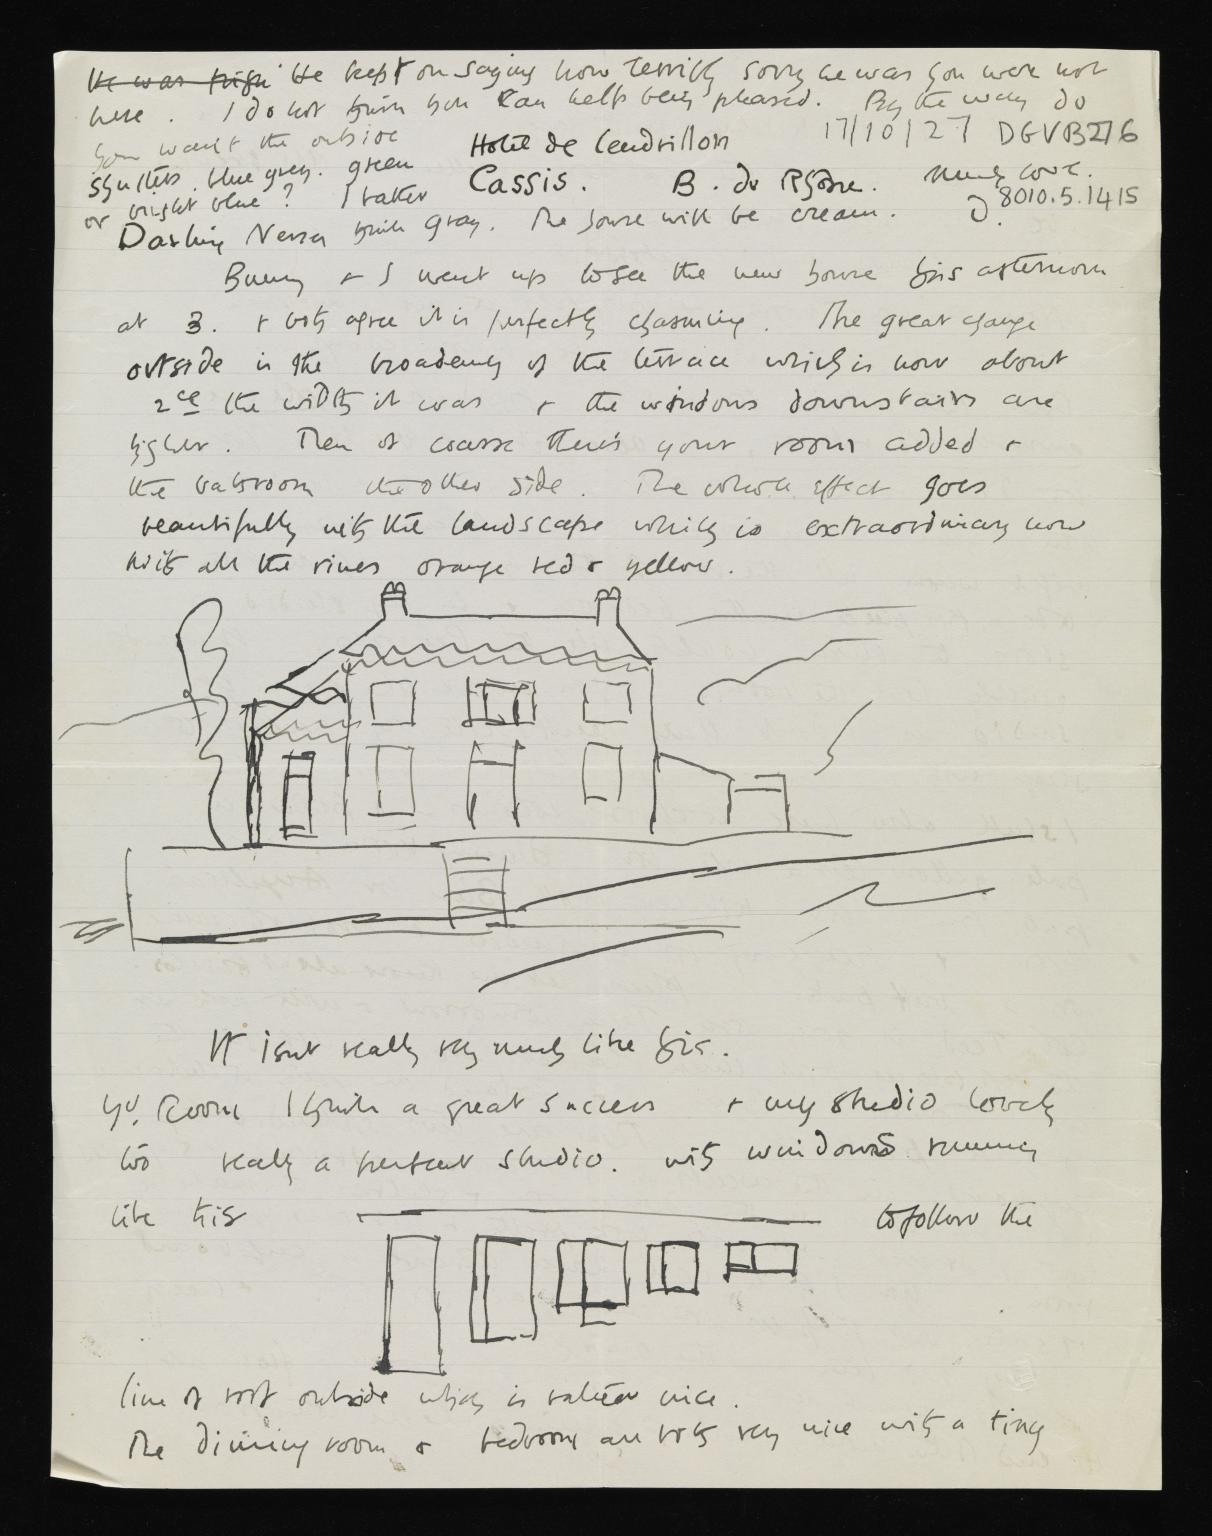 He kept on saying how terribly sorry he was you were not
here. I do not think you can help being pleased. By the way do
you want the outside
shutters. blue grey. green
or bright blue? I rather
think gray. The house will be cream.
Much love.
D.
17/10/27 DGVB276
8010.5.1415
Hotel de Cendrillon
Cassis. B. du Rhône.
Darling Nessa
Bunny + I went up to see the new house this afternoon
at 3. + both agree it is perfectly charming. The great change
outside is the broadening of the terrace which is now about
2ce the width it was + the windows downstairs are
higher. Then of coarse there's your room added +
the bathroom the other side. The whole effect goes
beautifully with the landscape which is extraordinary now
with all the vines orange red + yellow.
It isnt really very much like this.
Yr. Room I think a great success + my studio lovely
too really a perfect studio. with windows running
like this to follow the
line of roof outside which is rather nice.
The dining room + bedroom are both very nice with a tiny